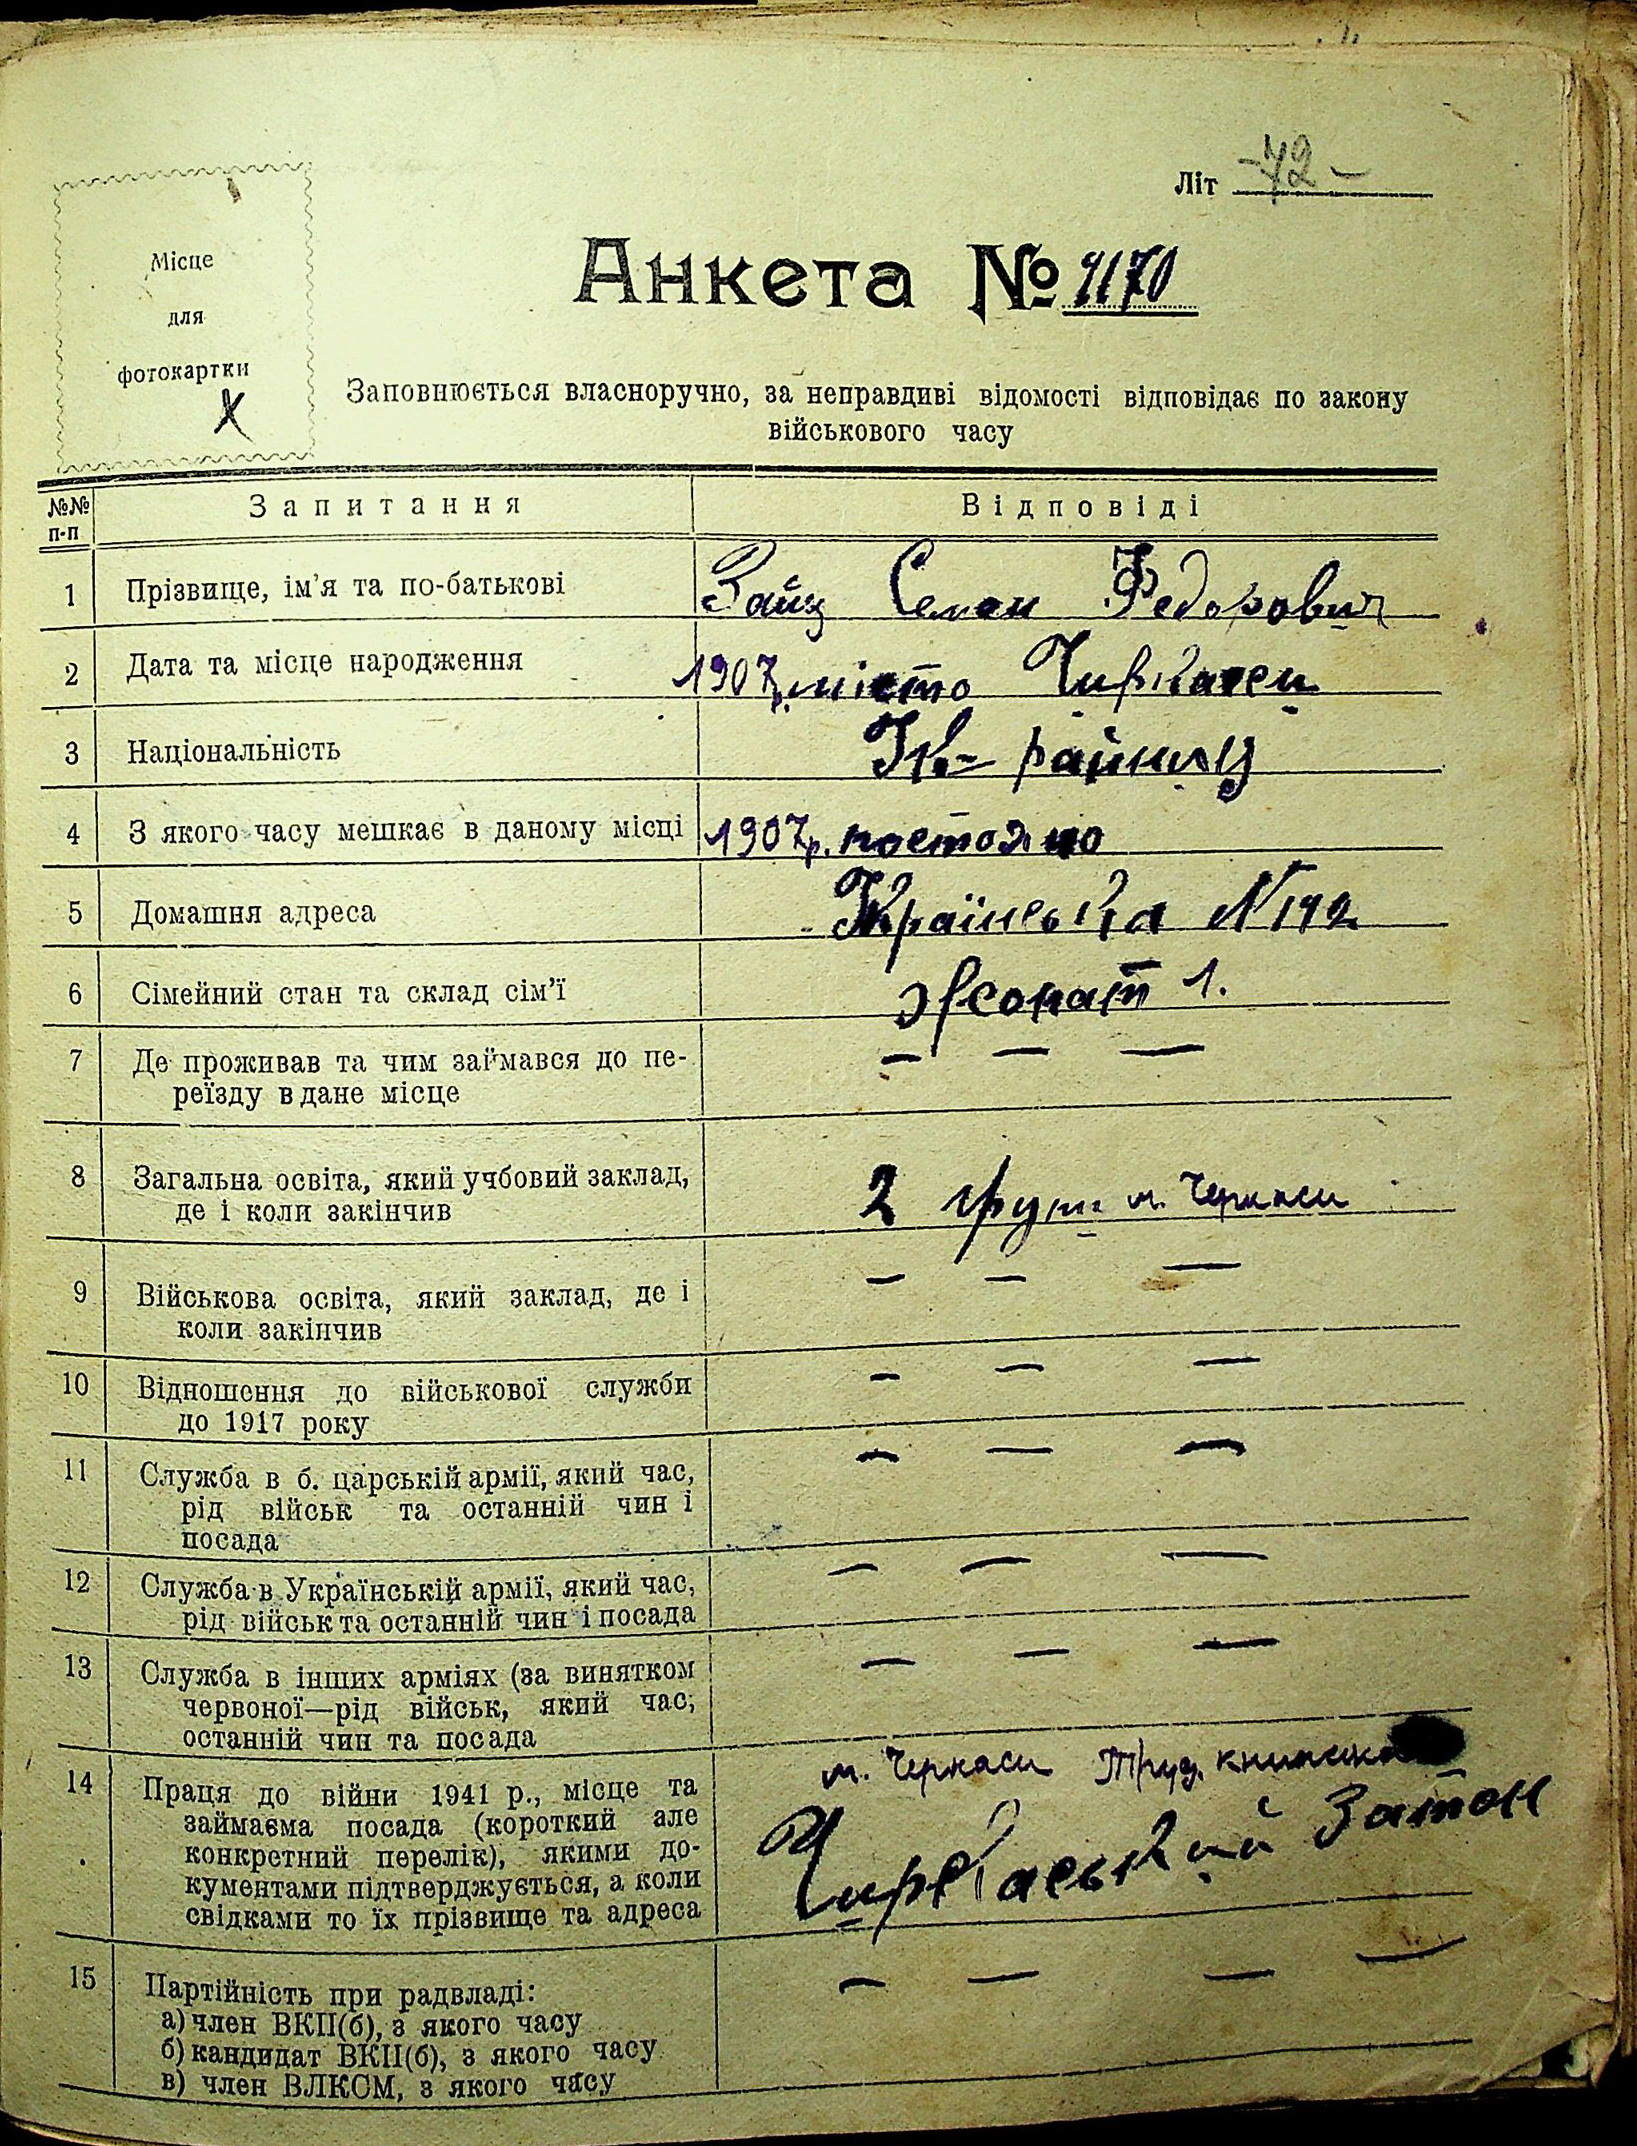 Літ -72-
Місце
для
фотокартки
х
Анкета № 4170
Заповнюється власноручно, за неправдиві відомості відповідає по закону
військового часу
№№
п-п
Запитання
Відповіді
1
Прізвище, ім'я та по-батькові
Заиц Семен Федорович
2
Дата та місце народження
1907р. місто Чиркаси
3
Національність
4
З якого часу мешкає в даному місці
1907р. постояно
5
Домашня адреса
Країнська N 142
6
Сімейний стан та склад сім'ї
жонат 1.
7
Де проживав та чим займався до пе-
реїзду в дане місце
— — —
8
Загальна освіта, який учбовий заклад,
де і коли закінчив
2 груп м. Черкаси
9
Військова освіта, який заклад, де і
коли закінчив
— — —
10
Відношення до військової служби
до 1917 року
— — —
11
Служба в б. царській армії, який час,
рід військ та останній чин і
посада
— — —
12
Служба в Українській армії, який час,
рід військ та останній чин і посада
— — —
13
Служба в інших арміях (за винятком
червоної—рід військ, який час,
останній чин та посада
— — —
14
Праця до війни 1941 р., місце та
займаєма посада (короткий але
конкретний перелік), якими до-
кументами підтверджується, а коли
свідками то їх прізвище та адреса
м. Черкаси Труд. книжка
Чиркаський Затон
15
Партійність при радвладі:
а) член ВКП(б), з якого часу
б) кандидат ВКП(б), з якого часу
в) член ВЛКСМ, з якого часу
— — — —